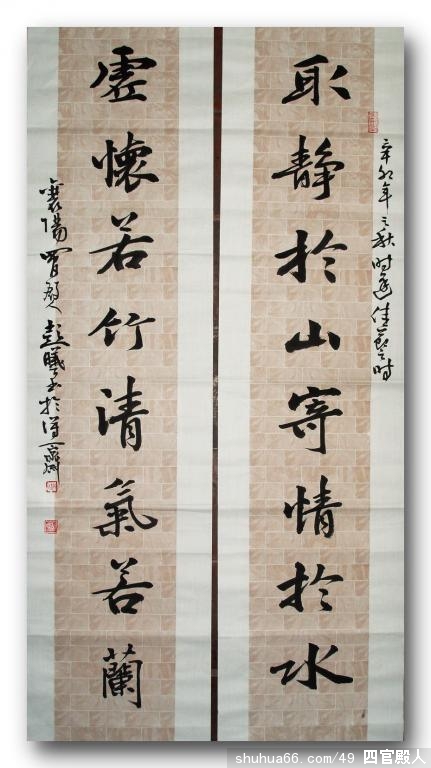 辛卯年之秋时逢佳节之时
取静於山寄情於水
虚懷若竹清氣若蘭
襄陽彭曦书於
shuhua66.com/49 四官殿人